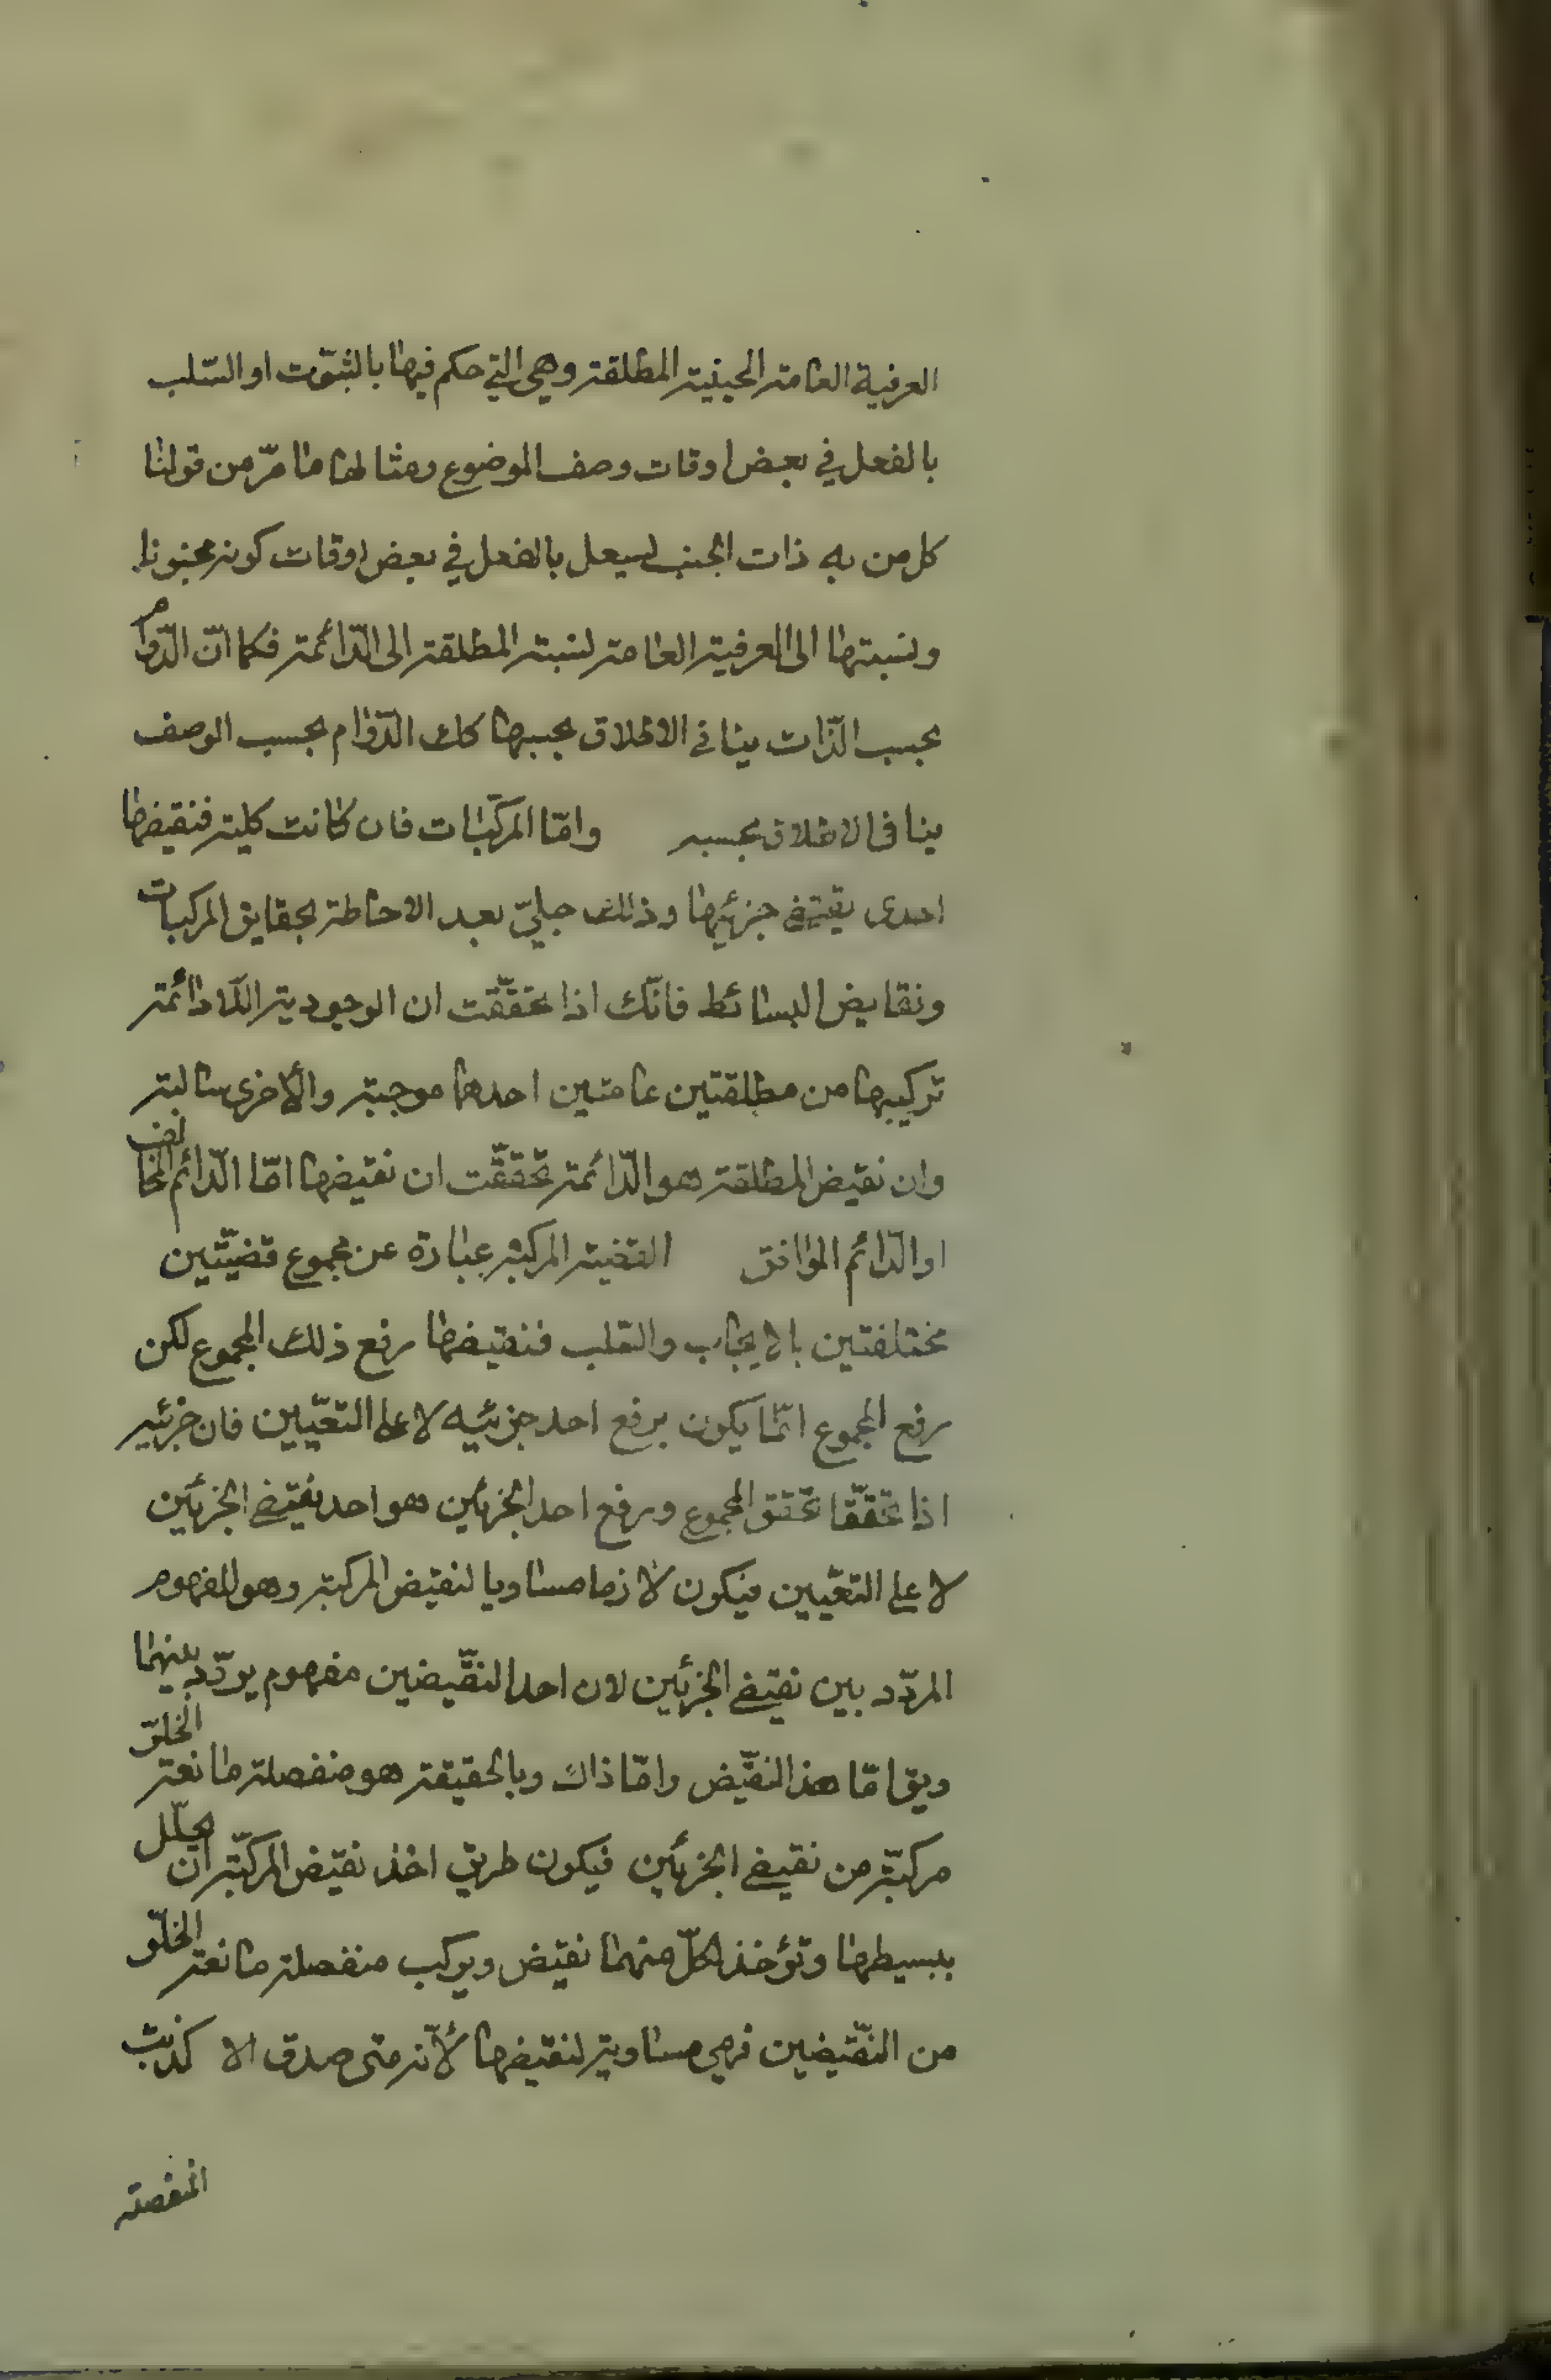 العرفية العامة الحينية المطلقة وهى التى حكم فيها بالثبوت او السّلب
بالفعل في بعض اوقات وصف الموضوع ومثالها ما مرّ من قولنا
كل من به ذات الجنب يسعل بالفعل في بعض اوقات كونه مجنوبا
ونسبتها الى العرفية العامة كنسبة المطلقة الى الدّائمة فكما انّ الدّوام
بحسب الذّات ينافى الاطلاق بحسبها كك الدّوام بحسب الوصف
ينافى الاطلاق بحسبه وامّا المركّبات فان كانت كلية فنقيضها
احدى نقيضى جزئيها وذلك جليّ بعد الاحاطة بحقايق المركبات
ونقايض البسائط فانّك اذا تحقّقت ان الوجودية اللّادائمة
تركيبها من مطلقتين عامتين احدهما موجبة والأخرى سالبة
وان نقيض المطلقة هو الدّائمة تحقّقت ان نقيضها امّا الدّائم المخالف
او الدّائم الموافق القضية المركبة عبارة عن مجموع قضيّتين
مختلفتين بالايجاب والسّلب فنقيضها رفع ذلك المجموع لكن
رفع المجموع انّما يكون برفع احد جزئيه لا على التعيّين فان جزئيه
اذا تحقّقا تحقق المجموع ورفع احد الجزئين هو احد نقيضى الجزئين
لا على التعيّين فيكون لازما مساويا لنقيض المركبة وهو المفهوم
المردّد بين نقيضى الجزئين لان احد النقيّضين مفهوم يردّد بينهما
ويق امّا هذا النقيّض وامّا ذاك وبالحقيقة هو منفصلة مانعة الخلوّ
مركبّة من نقيضى الجزئين فيكون طريق اخذ نقيّض المركبّة ان يحلّل
ببسيطها وتؤخذ لكلّ منهما نقيّض ويركب منفصلة مانعة الخلوّ
من النقّيضين فهى مساوية لنقيضها لأنّه متى صدق الا كذبت
المنفصلة